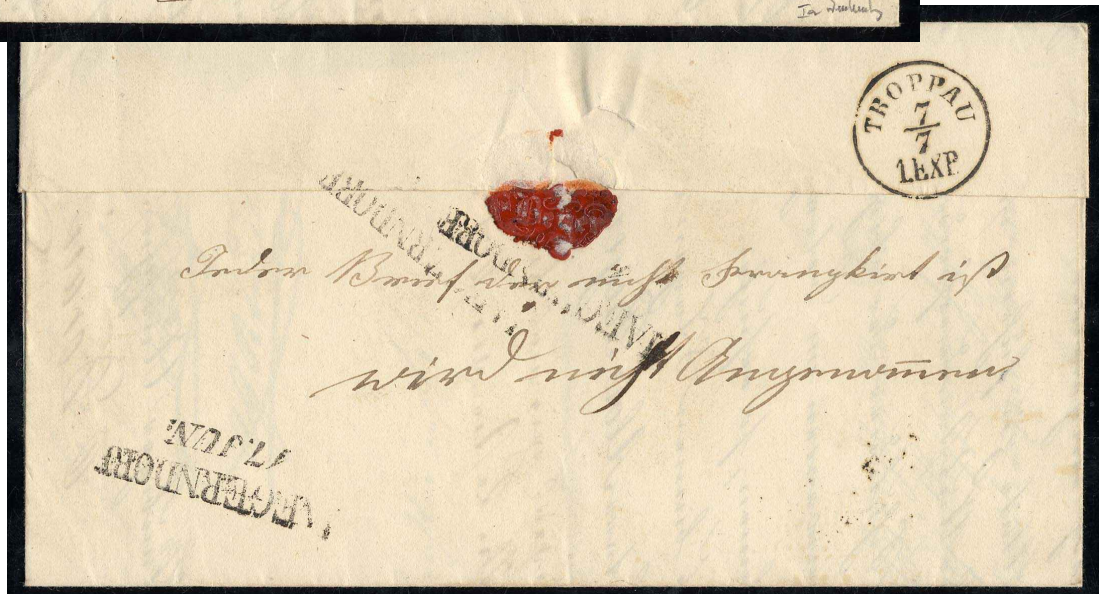 Ia
TROPPAU
7/7
1.EXP.
JÆGERNDORF
JÆGERNDORF
Jeder Brief der nicht Frangkirt ist
wird nicht Angenom̅en
JÆGERNDORF
17.JUN: